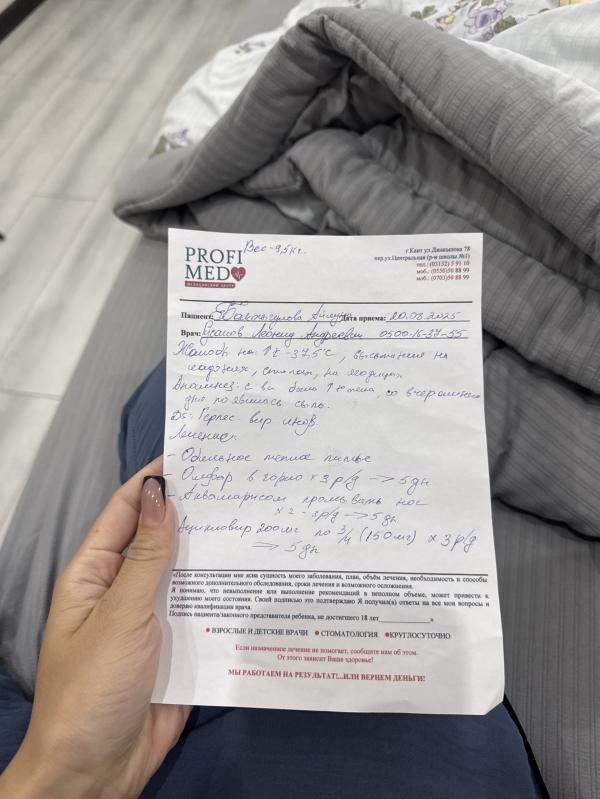 Вес - 9,5 кг.
PROFI
MED
МЕДИЦИНСКИЙ ЦЕНТР
г.Кант ул.Джакыпова 78
пер.ул.Центральная (р-н школы №1)
тел.: (03132) 5 91 10
моб.: (0550)50 88 99
моб.: (0703)50 88 99
Пациент: Айлун Дата приема: 20.08.2025
Врач: Усанов Леонид Андреевич 0500-16-37-55
Жалобы на: ↑t - 37,5°C, высыпания на
ладонях, стопах, на ягодицах
Анамнез: с была ↑ со вчерашнего
дня появилась сыпь.
Ds: Герпес вир инф.
Лечение:
- Обильное теплое питье
- в горло × 3 р/д → 5 дн
- Аквамарисом промывать нос
× 2 - 3 р/д → 5 дн
Ацикловир 200 мг по 3/4 (150 мг) × 3 р/д
⇒ 5 дн
«После консультации мне ясна сущность моего заболевания, план, объём лечения, необходимость и способы
возможного дополнительного обследования, сроки лечения и возможного осложнения.
Я понимаю, что невыполнение или выполнение рекомендаций в неполном объеме, может привести к
ухудшению моего состояния. Своей подписью это подтверждаю Я получил(а) ответы на все мои вопросы и
доверяю квалификации врача.
Подпись пациента/законного представителя ребенка, не достигшего 18 лет_______________»
● ВЗРОСЛЫЕ И ДЕТСКИЕ ВРАЧИ ● СТОМАТОЛОГИЯ ●КРУГЛОСУТОЧНО
Если назначенное лечение не помогает, сообщите нам об этом.
От этого зависит Ваше здоровье!
МЫ РАБОТАЕМ НА РЕЗУЛЬТАТ!...ИЛИ ВЕРНЕМ ДЕНЬГИ!